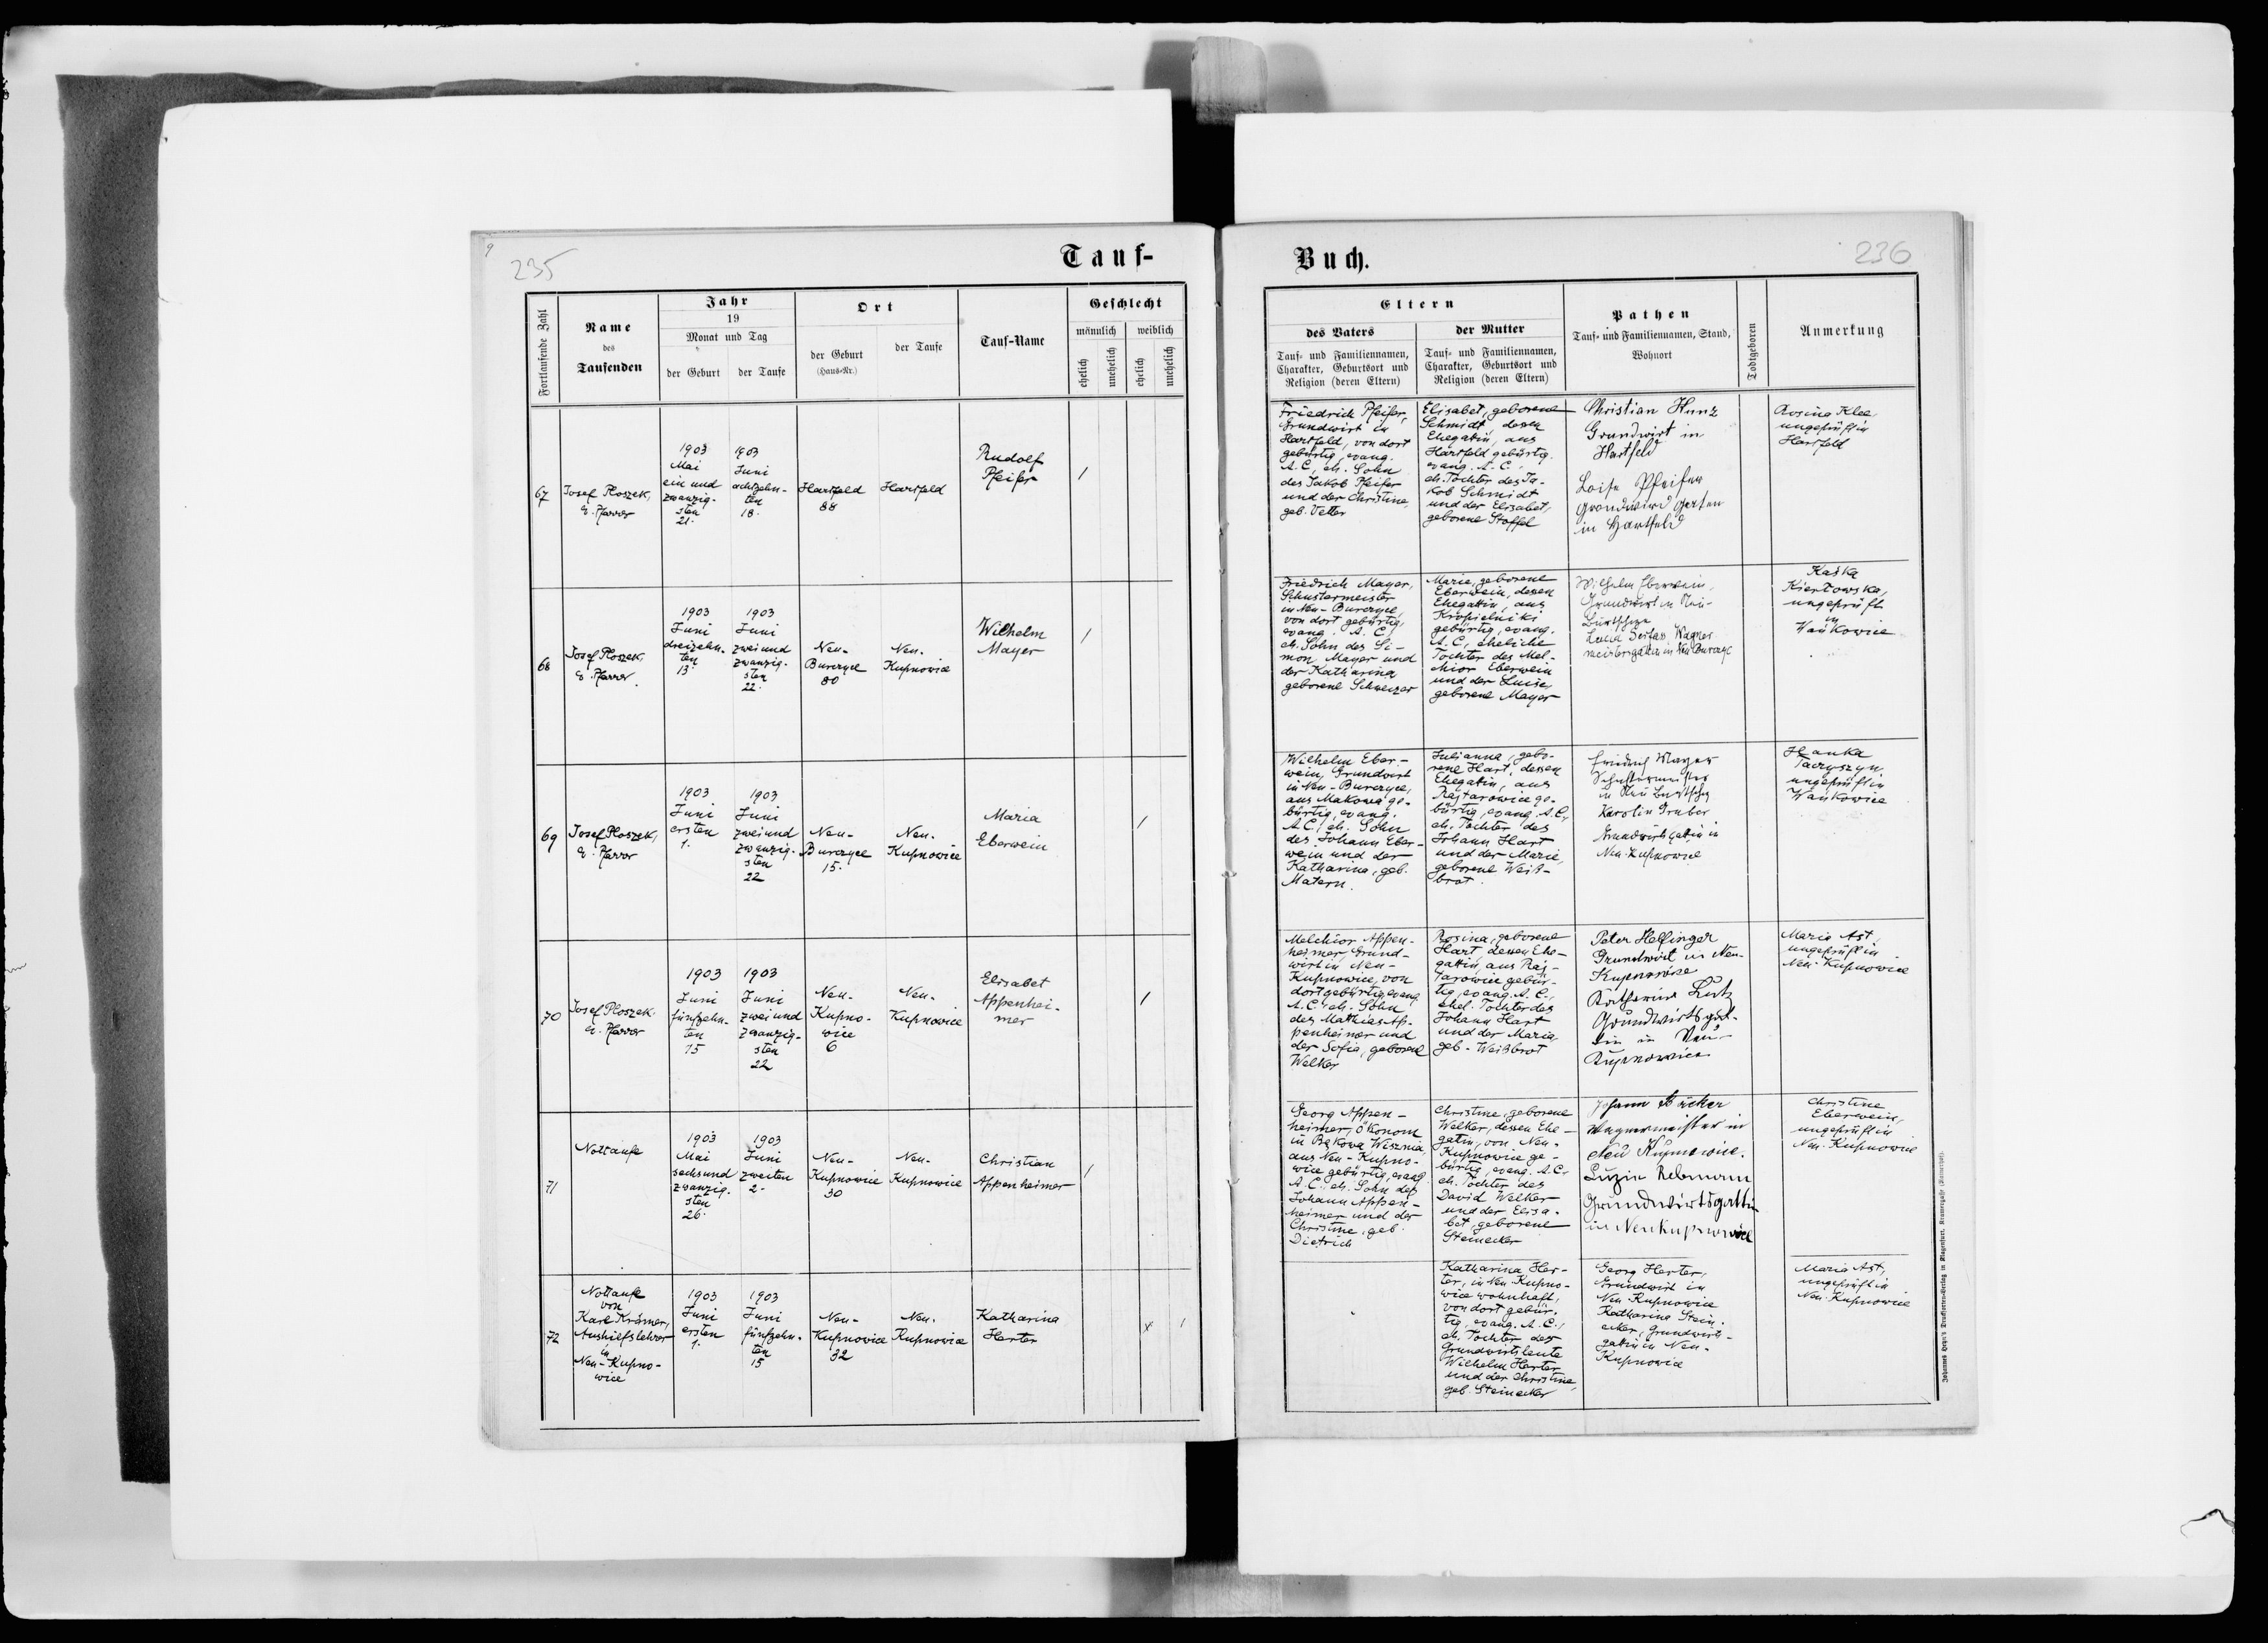 9
235
Tauf-
Fortlaufende Zahl
Name
des
Taufenden
Jahr
19
Monat und Tag
der Geburt
der Taufe
Ort
der Geburt
(Haus-Nr.)
der Taufe
Tauf-Name
Geschlecht
männlich
weiblich
ehelich
unehelich
ehelich
unehelich
67
Josef Ploszek,
e. Pfarrer
1903
Mai
ein und
zwanzig-
sten
21.
1903
Juni
achtzehn-
ten
18.
Hartfeld
88
Hartfeld
Rudolf
Pfeifer
/
68
Josef Ploszek,
e. Pfarrer
1903
Juni
dreizehn-
ten
13.
1903
Juni
zweiund
zwanzig-
sten
22.
Neu-
Burczyce
80
Neu-
Kupnowice
Wilhelm
Mayer
/
69
Josef Ploszek,
e. Pfarrer
1903
Juni
ersten
1.
1903
Juni
zweiund
zwanzig-
sten
22
Neu-
Burczyce
15.
Neu-
Kupnowice
Maria
Eberwein
/
70
Josef Ploszek
e. Pfarrer
1903
Juni
fünfzehn-
ten
15
1903
Juni
zweiund
zwanzig-
sten
22
Neu-
Kupno-
wice
6
Neu-
Kupnowice
Elisabet
Appenhei-
mer
/
71
Nottaufe
1903
Mai
sechsund
zwanzig-
sten
26.
1903
Juni
zweiten
2.
Neu-
Kupnowice
30
Neu-
Kupnowice
Christian
Appenheimer
/
72
Nottaufe
von
Karl Krämer,
Aushilfslehrer
in
Neu-Kupno-
wice
1903
Juni
ersten
1.
1903
Juni
fünfzehn-
ten
15
Neu-
Kupnowice
32
Neu-
Kupnowice
Katharina
Herter
x /
Buch.
236
Eltern
des Vaters
Tauf- und Familiennamen,
Charakter, Geburtsort und
Religion (deren Eltern)
der Mutter
Tauf- und Familiennamen,
Charakter, Geburtsort und
Religion (deren Eltern)
Pathen
Tauf- und Familiennamen, Stand,
Wohnort
Todtgeboren
Anmerkung
Friedrich Pfeifer,
Grundwirt in
Hartfeld, von dort
gebürtig, evang.
A.C., eh. Sohn
des Jakob Pfeifer
und der Christine,
geb. Vetter
Elisabet, geborene
Schmidt, dessen
Ehegattin, aus
Hartfeld gebürtig,
evang. A.C.,
eh. Tochter des Ja-
kob Schmidt
und der Elisabet,
geborene Stoffel
Christian Kunz
Grundwirt in
Hartfeld
Loise Pfeifer
in Hartfeld
Rosina Klee,
ungeprüft in
Hartfeld
Friedrich Mayer,
Schustermeister
in Neu-Burczyce,
von dort gebürtig,
evang. A.C.,
eh. Sohn des Si-
mon Mayer und
der Katharina
geborene Schweizer
Marie, geborene
Eberwein, dessen
Ehegattin, aus
Kropielniki
gebürtig, evang.
A.C., eheliche
Tochter des Mel-
chior Eberwein
und der Luise,
geborene Mayer
Wilhelm Eberwein,
Grundwirt in Neu-
Wagner
meistersgattin in Neu Burczyce
Kaśka
Kiertowska,
ungeprüft
in
Wańkowice
Wilhelm Eber-
wein, Grundwirt
in Neu-Burczyce,
aus Makowa ge-
bürtig, evang.
A.C., eh. Sohn
des Johann Eber-
wein und der
Katharina, geb.
Matern.
Julianna, gebo-
rene Hart, dessen
Ehegattin, aus
Rajtarowice ge-
bürtig, evang. A.C.,
eh. Tochter des
Johann Hart
und der Marie,
geborene Weiß-
brot.
Friedrich Mayer
Schustermeister
Karolin Gruber
Grundwirtsgattin in
Neu-Kupnowice
Hanka
Taczyszyn
ungeprüft in
Wańkowice
Melchior Appen-
heimer, Grund-
wirt in Neu-
Kupnowice, von
dort gebürtig, evang.
A.C., eh. Sohn
des Mathias Ap-
penheimer und
der Sofia, geborene
Welker
Rosina, geborene
Hart, dessen Ehe-
gattin, aus Raj-
tarowice gebür-
tig, evang. A.C.,
ehel. Tochter des
Johann Hart
und der Maria,
geb. Weißbrot
Peter Helfinger
Grundwirt in Neu-
Kupnowice
Katharina Lutz
Grundwirtsgat-
tin in Neu-
Kupnowice
Maria Ast,
ungeprüft in
Neu-Kupnowice
Georg Appen-
heimer, Ökonom
in Bąkowa Wisznia,
aus Neu-Kupno-
wice gebürtig, evang.
A.C., eh. Sohn des
Johann Appen-
heimer und der
Christine, geb.
Dietrich
Christine, geborene
Welker, dessen Ehe-
gattin, von Neu-
Kupnowice ge-
bürtig, evang. A.C.,
eh. Tochter des
David Welker
und der Elisa-
bet, geborene
Steinecker
Johann Bäcker
Wagnermeister in
Neu Kupnowice.
Luzin Rebmann
Grundwirtsgattin
in Neukupnowice
Christine
Eberwein,
ungeprüft in
Neu-Kupnowice
Katharina Her-
ter, in Neu Kupno-
wice wohnhaft,
von dort gebür-
tig, evang. A.C.,
eh. Tochter der
Grundwirtsleute
Wilhelm Herter
und der Christine,
geb. Steinecker
Georg Herter,
Grundwirt in
Neu Kupnowice
Katharina Stein-
ecker, Grundwirts-
gattin in Neu-
Kupnowice
Maria Ast,
ungeprüft in
Neu-Kupnowice